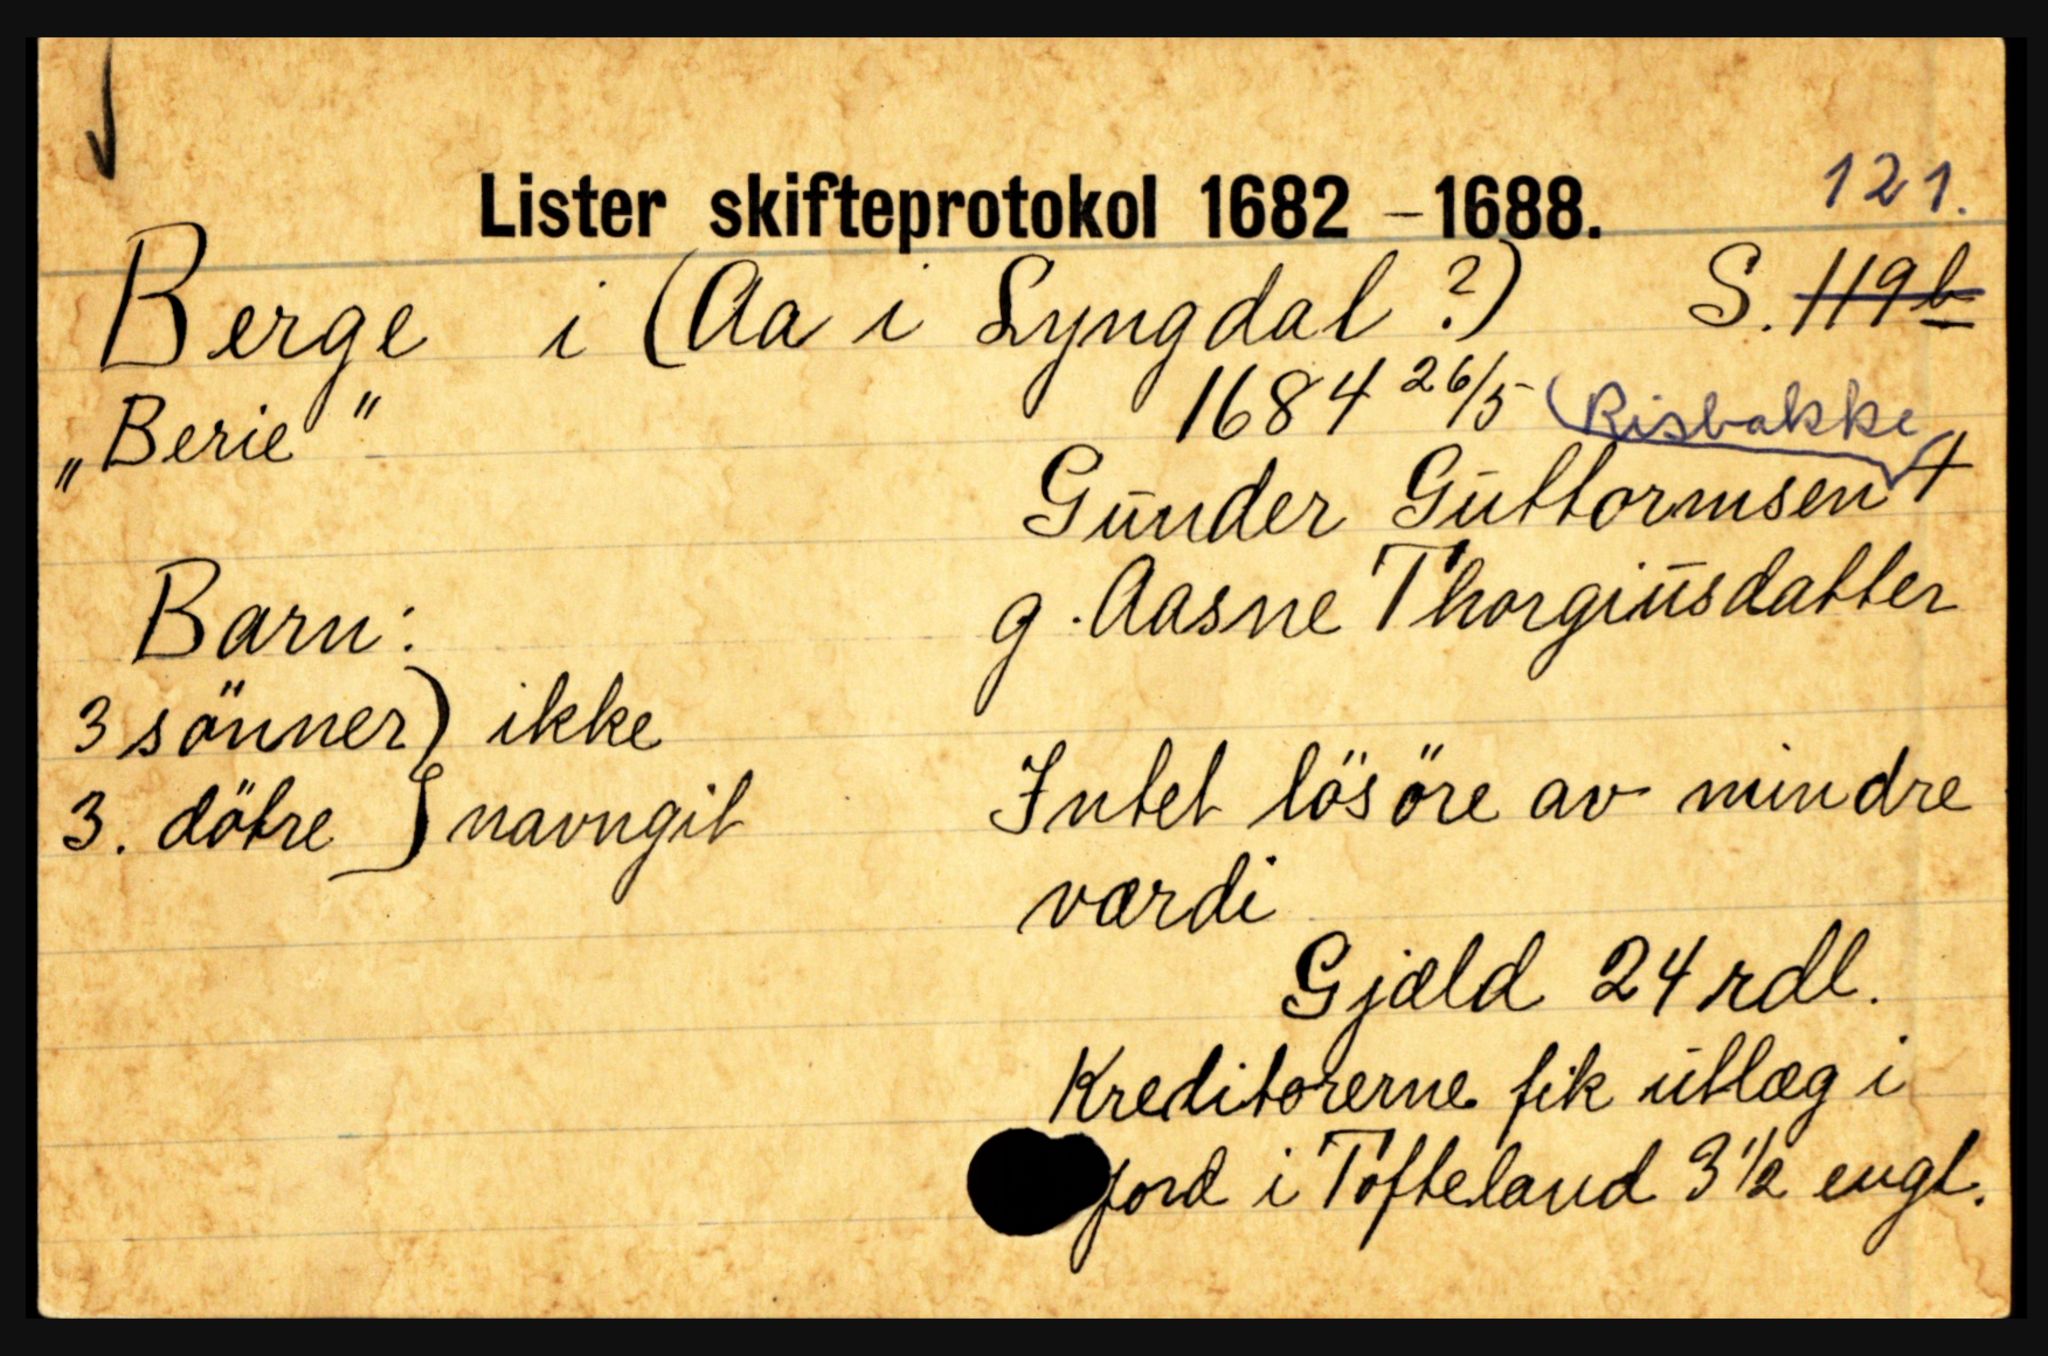 Lister skifteprotokol 1682 - 1688.
121.
Berge i (Aa i Lyngdal ?) S. 119b
"Berie" 1684 26/5 (Risbakke
Gunder Guttormsen +
g. Aasne Thorgiusdatter
Barn:
3 sönner) ikke
3. dötre } navngit
Intet lösöre av mindre
værdi
Gjæld 24 rdl.
Kreditorerne fik utlæg i
jord i Tofteland 3 1/2 engl.